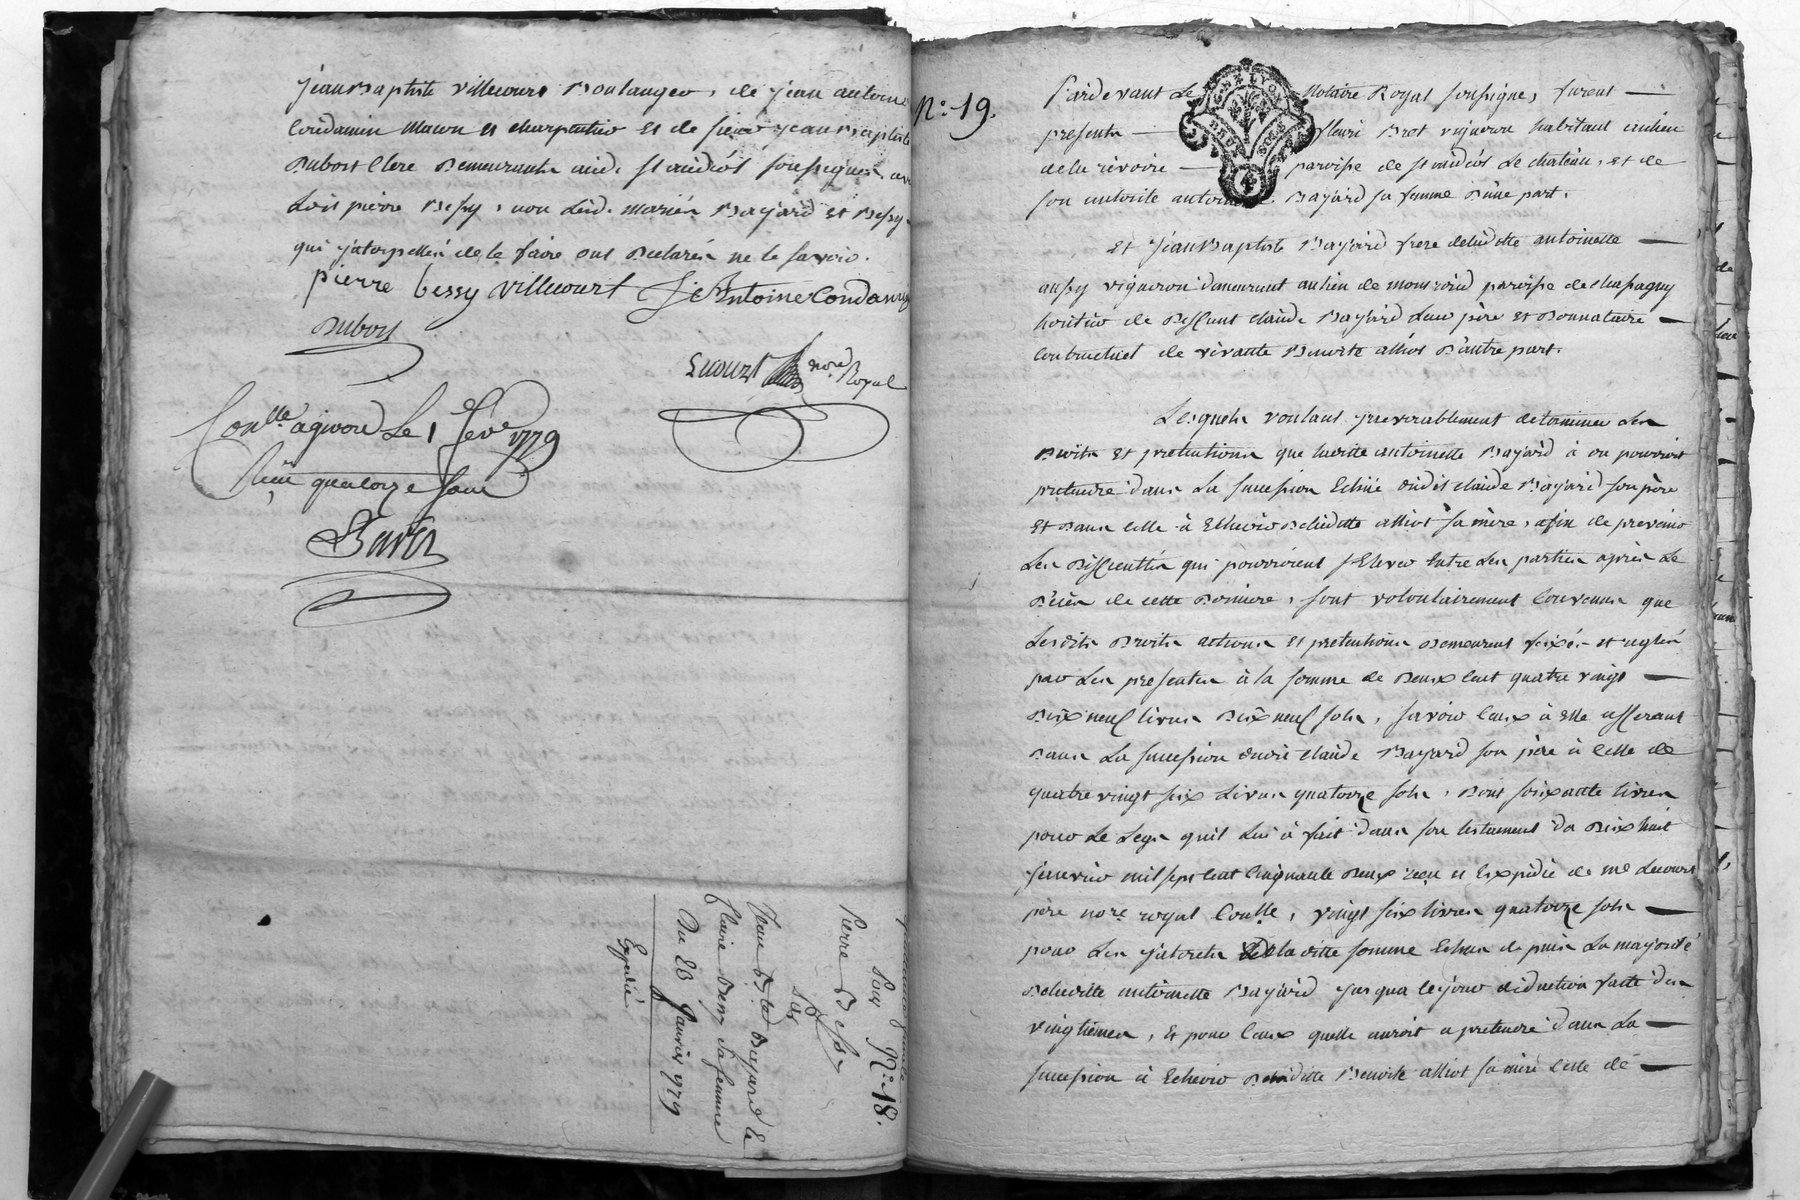 jean Baptiste villecourt Boulanger, de jean antoine
Condamin Macon et charpentier et de sieur jean Baptiste
Dubost Clerc Demeurants aud. st andéol soussignés, avec
Ledit pierre Bessy, non Lesd. mariés Bajard et Bessy
qui jnterpellés de le faire ont Declarés ne le savoir.
pierre bessy villecourt J Antoine Condamin
Dubost
not.re Royal
Con.lle a givord Le 1 fevr 1779
Reçu quatorze sous
Quittance finale
Pour N.° 18.
Pierre Bessy
Par
Jean B.te Bajard Et
Claire Bessy Sa femme
Du 28 Janvier 1779
Expedié
N.° 19.
Pardevant Le Notaire Royal soussigné, furent
presents fleuri Brot vigneron habitant au lieu
de la rivoire paroisse de st andéol Le chateau, et de
son autorité antoinette Bajard sa femme D'une part.
Et jean Baptiste Bajard frere de ladite antoinette
aussy vigneron demeurant au lieu de montrond paroisse de chassagny
heritier de Deffunt claude Bajard Leur père et Donnataire
Contractuel de vivante Benoite alliot D'autre part.
Lesquels voulant jrrevocablement determiner Les
Droits et pretentions que ladite antoinette Bajard à ou pourroit
pretendre dans La succession Echüe dudit claude Bajard son père
et Dans celle à Echevoir De ladite alliot sa mère, afin de prevenir
Les Difficultés qui pourroient s'Elever Entre Les parties après Le
Décès de cette Derniere, sont volontairement Convenus que
Lesdits Droits actions et pretentions Demeurent fixés et reglés
par Les presentes à la somme de Deux Cent quatre vingt
Dix neuf livres Dix neuf sols, savoir Ceux à Elle afferant
Dans La succession dudit claude Bajard son père à Celle de
quatre vingt six Livres quatorze sols, Dont soixante livres
pour Le Legs quil Lui à fait dans son testament du Dix huit
janvier mil sept Cent Cinquante Deux reçu et Expedié de me Lecourt
père no.re royal Con.lle, vingt six livres quatorze sols
pour Les jnterets de la ditte somme Echus depuis La majorité
De laditte antoinette Bajard jusqua Ce jour deduction faitte des
vingtièmes, Et pour Ceux quelle auroit a pretendre dans La
succession à Echevoir De laditte Benoite alliot sa mère Celle de